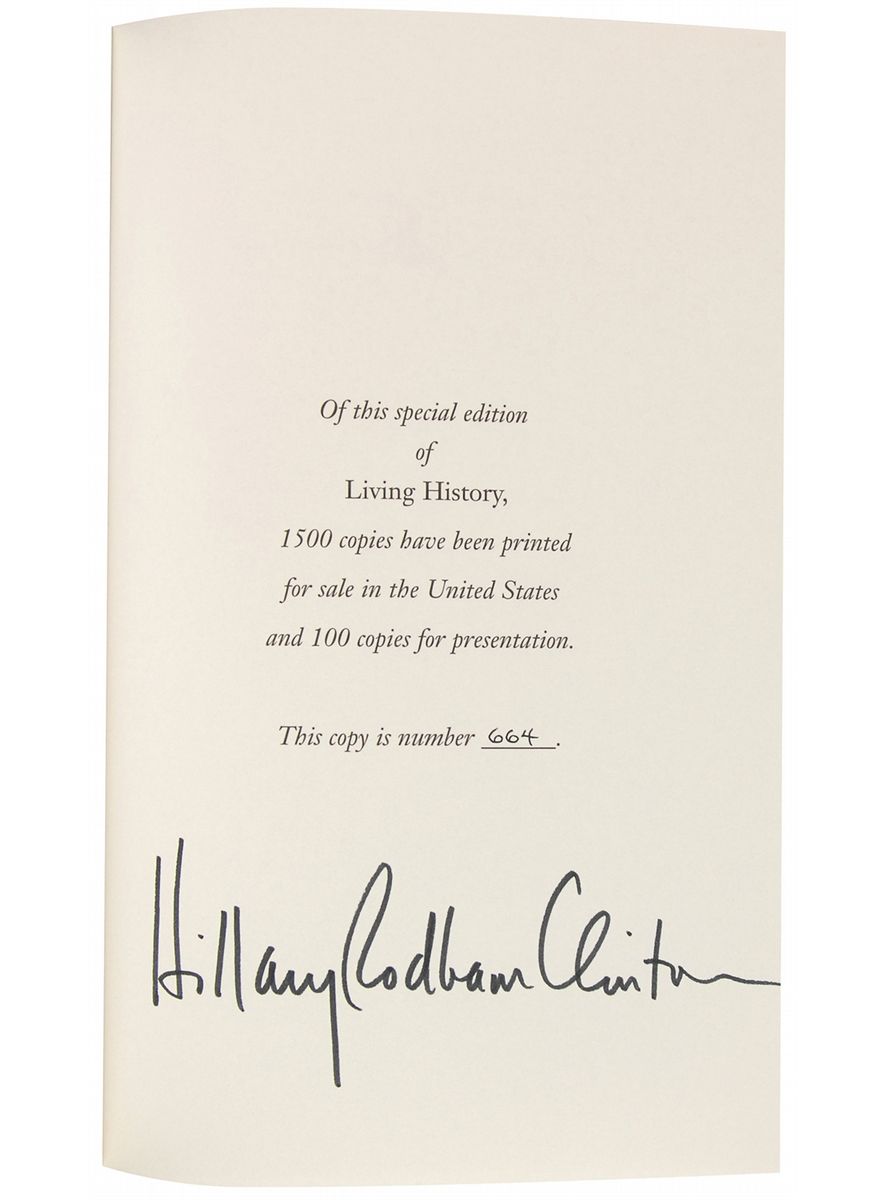 Of this special edition
of
Living History,
1500 copies have been printed
for sale in the United States
and 100 copies for presentation.
This copy is number 664.
Hillary Rodham Clinton